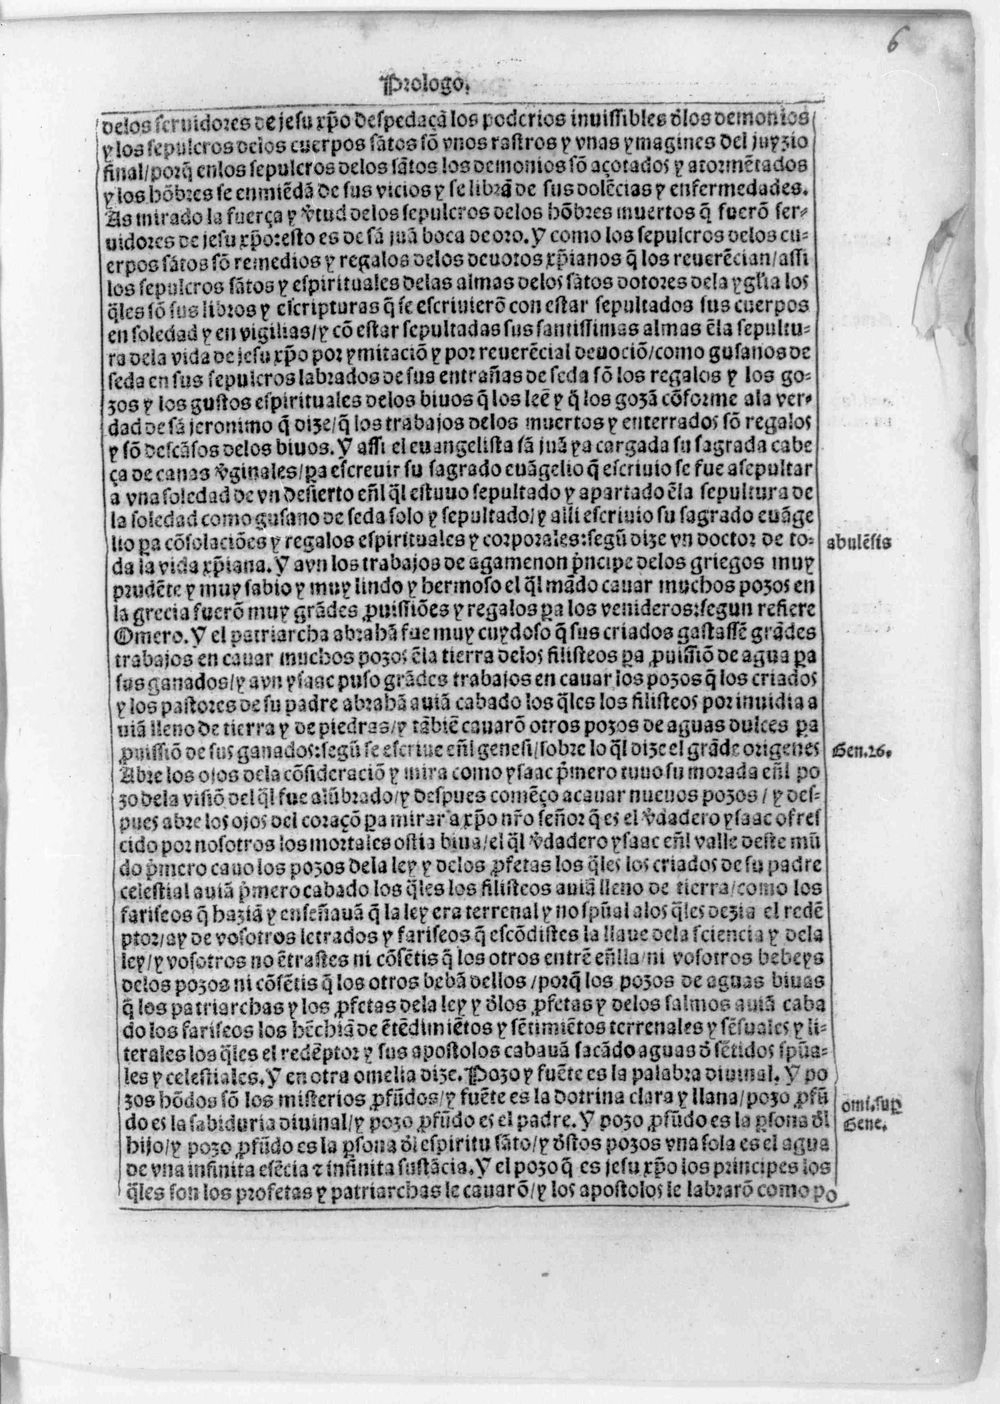 6
Prologo.
delos seruidores de jesu xp̃o despedaçã los poderios inuissibles d̃los demonios
y los sepulcros delos cuerpos sãtos sõ vnos rastros y vnas ymagines del juyzio
final/porq̃ enlos sepulcros delos sãtos los demonios sõ açotados y atormẽtados
y los hõbres se enmiẽdã de sus vicios y se librã de sus dolẽcias y enfermedades.
As mirado la fuerça y ṽtud delos sepulcros delos hõbres muertos q̃ fuerõ ser-
uidores de jesu xp̃o:esto es de sã juã boca de oro. Y como los sepulcros delos cu-
erpos sãtos sõ remedios y regalos delos deuotos xp̃ianos q̃ los reuerẽcian/assi
los sepulcros sãtos y espirituales delas almas delos sãtos dotores dela ygl̃ia los
q̃les sõ sus libros y escripturas q̃ se escriuierõ con estar sepultados sus cuerpos
en soledad y en vigilias/y cõ estar sepultadas sus santissimas almas ẽla sepultu-
ra dela vida de jesu xp̃o por ymitaciõ y por reuerẽcial deuociõ/como gusanos de
seda en sus sepulcros labrados de sus entrañas de seda sõ los regalos y los go-
zos y los gustos espirituales delos biuos q̃ los leẽ y q̃ los gozã cõforme ala ver-
dad de sã jeronimo q̃ dize/q̃ los trabajos delos muertos y enterrados sõ regalos
y sõ descãsos delos biuos. Y assi el euangelista sã juã ya cargada su sagrada cabe
ça de canas ṽginales/p̱a escreuir su sagrado euãgelio q̃ escriuio se fue asepultar
a vna soledad de vn desierto eñl q̃l estuuo sepultado y apartado ẽla sepultura de
la soledad como gusano de seda solo y sepultado/y alli escriuio su sagrado euãge
lio p̱a cõsolaciões y regalos espirituales y corporales:segũ dize vn doctor de to-
abulẽsis
da la vida xp̃iana. Y avn los trabajos de agamenon p̃ncipe delos griegos muy
prudẽte y muy sabio y muy lindo y hermoso el q̃l mãdo cauar muchos pozos en
la grecia fuerõ muy grãdes ꝓuissiões y regalos p̱a los venideros:segun refiere
Omero. Y el patriarcha abrahã fue muy cuydoso q̃ sus criados gastassẽ grãdes
trabajos en cauar muchos pozos ẽla tierra delos filisteos p̱a ꝓuissiõ de agua p̱a
sus ganados/y avn ysaac puso grãdes trabajos en cauar los pozos q̃ los criados
y los pastores de su padre abrahã auiã cabado los q̃les los filisteos por inuidia a
uiã lleno de tierra y de piedras/y tãbiẽ cauarõ otros pozos de aguas dulces p̱a
ꝓuissiõ de sus ganados:segũ se escriue eñl genesi/sobre lo q̃l dize el grãde origenes
Gen.26.
Abre los ojos dela cõsideraciõ y mira como ysaac p̃mero tuuo su morada eñl po
zo dela visiõ del q̃l fue alũbrado/y despues comẽço acauar nueuos pozos/y des-
pues abre los ojos del coraçõ p̱a mirar a xp̃o nr̃o señor q̃ es el ṽdadero ysaac ofres
cido por nosotros los mortales ostia biua/el q̃l ṽdadero ysaac eñl valle deste mũ
do p̃mero cauo los pozos dela ley y delos ꝓfetas los q̃les los criados de su padre
celestial auiã p̃mero cabado los q̃les los filisteos auiã lleno de tierra/como los
fariseos q̃ haziã y enseñauã q̃ la ley era terrenal y no spũal alos q̃les dezia el redẽ
ptor/ay de vosotros letrados y fariseos q̃ escõdistes la llaue dela sciencia y dela
ley/y vosotros no ẽtrastes ni cõsẽtis q̃ los otros entrẽ eñlla/ni vosotros bebeys
delos pozos ni cõsẽtis q̃ los otros bebã dellos/porq̃ los pozos de aguas biuas
q̃ los patriarchas y los ꝓfetas dela ley y d̃los ꝓfetas y delos salmos auiã caba
do los fariseos los hẽchiã de ẽtẽdimiẽtos y sẽtimiẽtos terrenales y sẽsuales y li-
terales los q̃les el redẽptor y sus apostolos cabauã sacãdo aguas d̃ sẽtidos spũa-
les y celestiales. Y en otra omelia dize. Pozo y fuẽte es la palabra diuinal. Y po
zos hõdos sõ los misterios ꝓfũdos/y fuẽte es la dotrina clara y llana/pozo ꝓfũ
omi.sup̱
do es la sabiduria diuinal/y pozo ꝓfũdo es el padre. Y pozo ꝓfũdo es la p̱sona d̃l
Gene.
hijo/y pozo ꝓfũdo es la p̱sona d̃l espiritu sãto/y d̃stos pozos vna sola es el agua
de vna infinita esẽcia ⁊ infinita sustãcia. Y el pozo q̃ es jesu xp̃o los principes los
q̃les son los profetas y patriarchas le cauarõ/y los apostolos le labrarõ como po